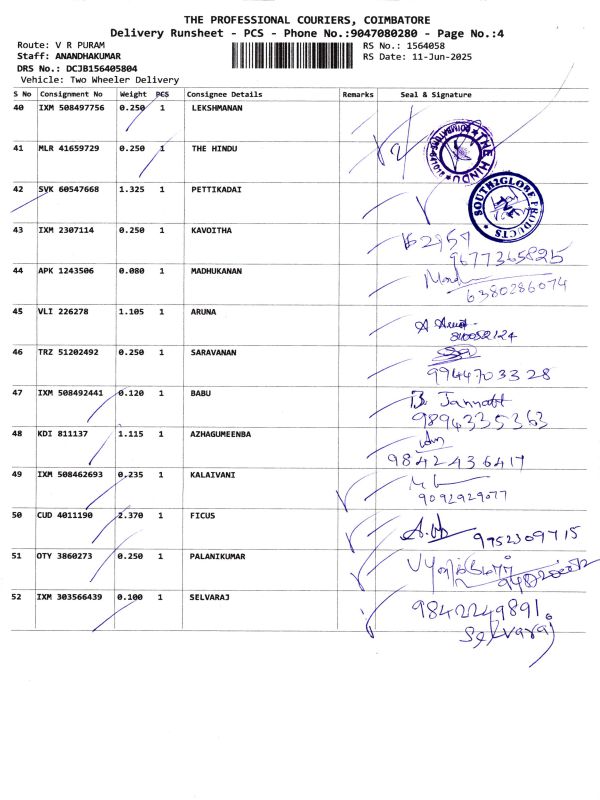 THE PROFESSIONAL COURIERS, COIMBATORE
Delivery Runsheet - PCS - Phone No.:9047080280 - Page No.:4
Route: V R PURAM RS No.: 1564058
Staff: ANANDHAKUMAR RS Date: 11-Jun-2025
DRS No.: DCJB156405804
Vehicle: Two Wheeler Delivery
S No Consignment No Weight PCS Consignee Details Remarks Seal & Signature
40 IXM 508497756 0.250 1 LEKSHMANAN
41 MLR 41659729 0.250 1 THE HINDU
THE HINDU
42 SVK 60547668 1.325 1 PETTIKADAI
SOUTH2GLOBE PRODUCTS
43 IXM 2307114 0.250 1 KAVOITHA
9677365825
44 APK 1243506 0.080 1 MADHUKANAN
6380286074
45 VLI 226278 1.105 1 ARUNA
46 TRZ 51202492 0.250 1 SARAVANAN
9944703328
47 IXM 508492441 0.120 1 BABU
9894335363
48 KDI 811137 1.115 1 AZHAGUMEENBA
9842436417
49 IXM 508462693 0.235 1 KALAIVANI
9092929077
50 CUD 4011190 2.370 1 FICUS
9752309715
51 OTY 3860273 0.250 1 PALANIKUMAR
52 IXM 303566439 0.100 1 SELVARAJ
9842249891
Selvaraj